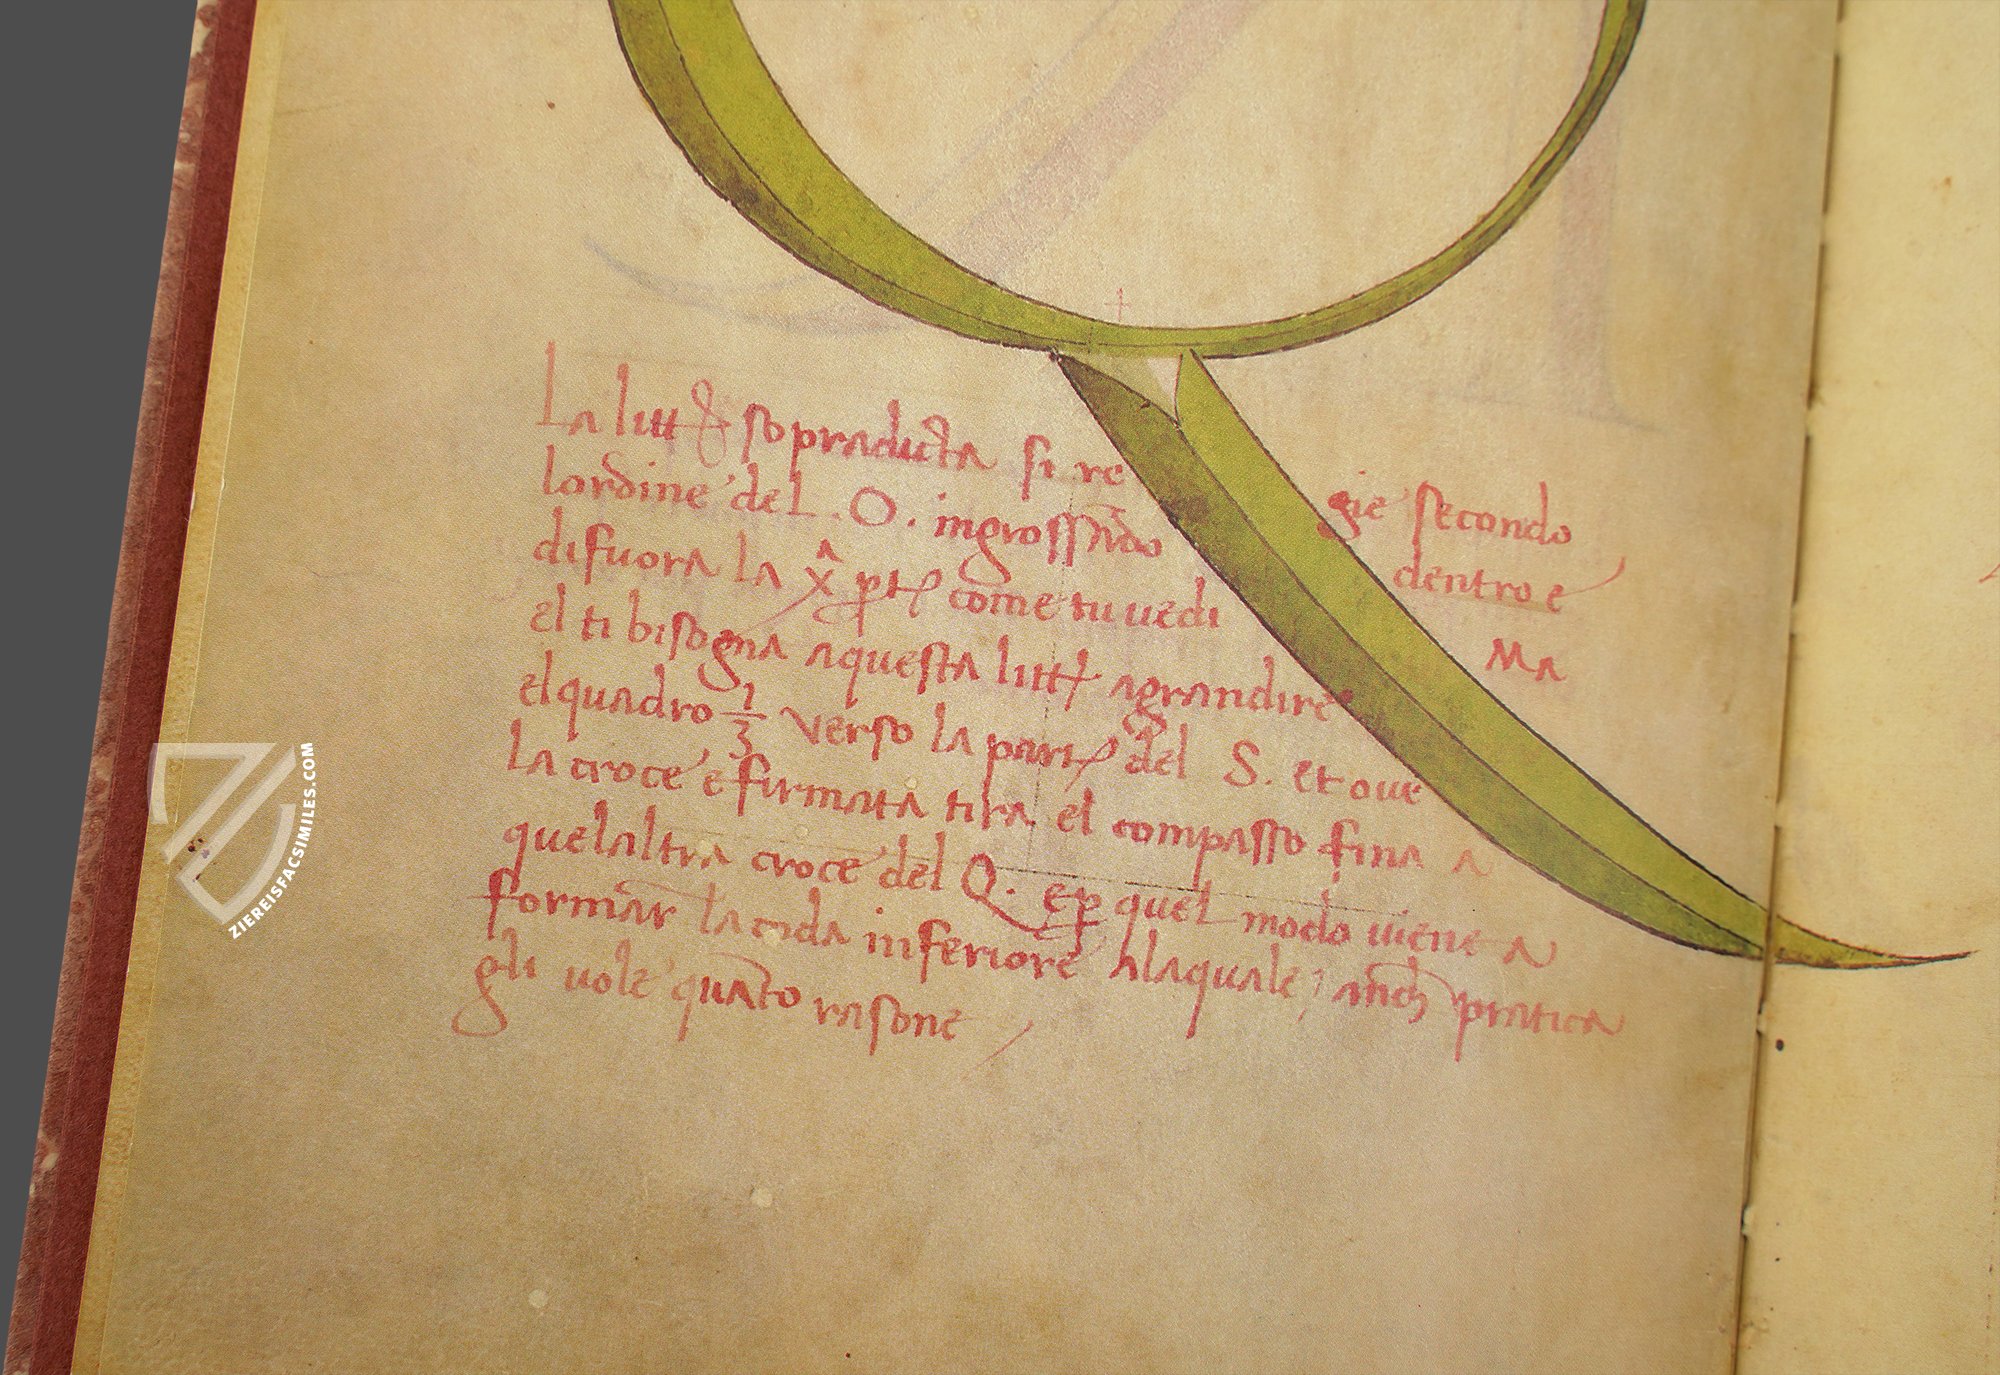 La litt sopradicta si re gie secondo
lordine del . O . ingrossādo dentro e
difuora la x^a ꝑt come tu uedi MA
el ti bisogna aquesta litt agrandire
elquadro 1/3 verso la part del S. et oue
la croce e firmata tira el compasso fina a
quelaltra croce del Q. eꝑ quel modo uiene a
formar la coda inferiore alaquale pratica
gli uole quāto rasone
ZIEREISFACSIMILES.COM